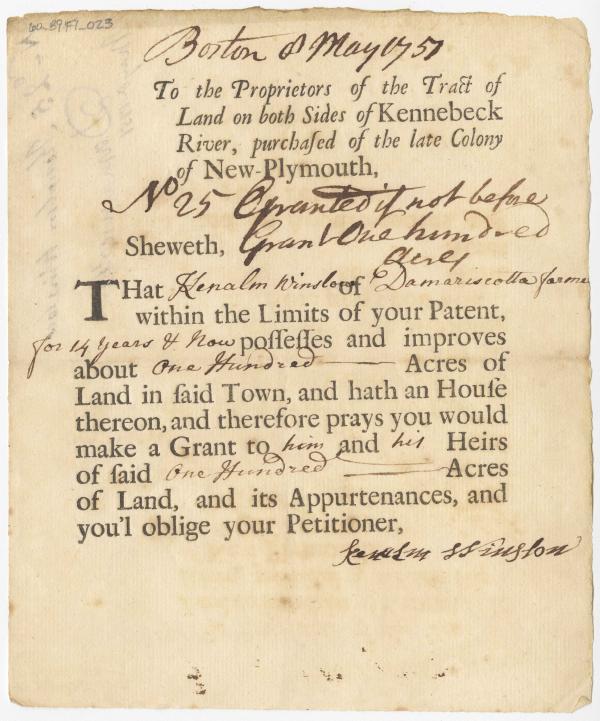 60_89F7_023
Boston 8 May 1751
To the Proprietors of the Tract of
Land on both Sides of Kennebeck
River, purchaſed of the late Colony
of New-Plymouth,
No 25 Granted if not before
Sheweth, Grant One hundred
Acres
THat Kenalm Winslow of Damariscotta farme
within the Limits of your Patent,
for 14 Years & Now poſſeſſes and improves
about One Hundred Acres of
Land in ſaid Town, and hath an Houſe
thereon, and therefore prays you would
make a Grant to him and his Heirs
of ſaid One Hundred Acres
of Land, and its Appurtenances, and
you'l oblige your Petitioner,
Kenelm Winslow